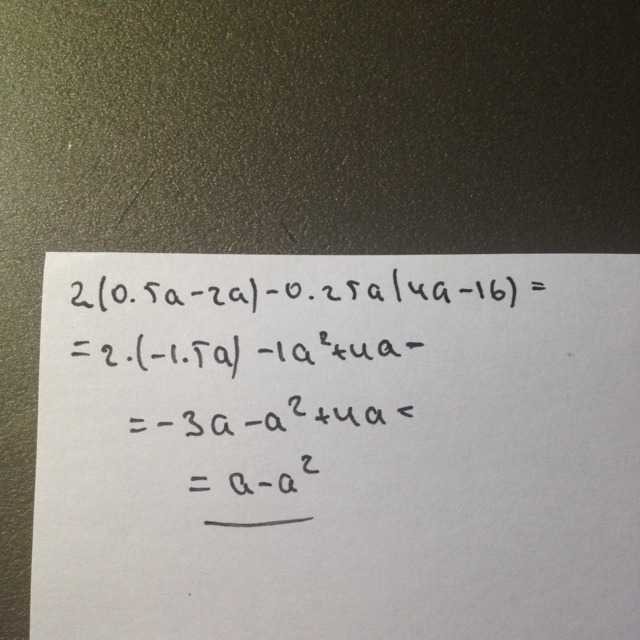 2(0.5a-2a)-0.25a(4a-16)=
=2·(-1.5a)-1a²+4a-
=-3a-a²+4a<
=a-a²